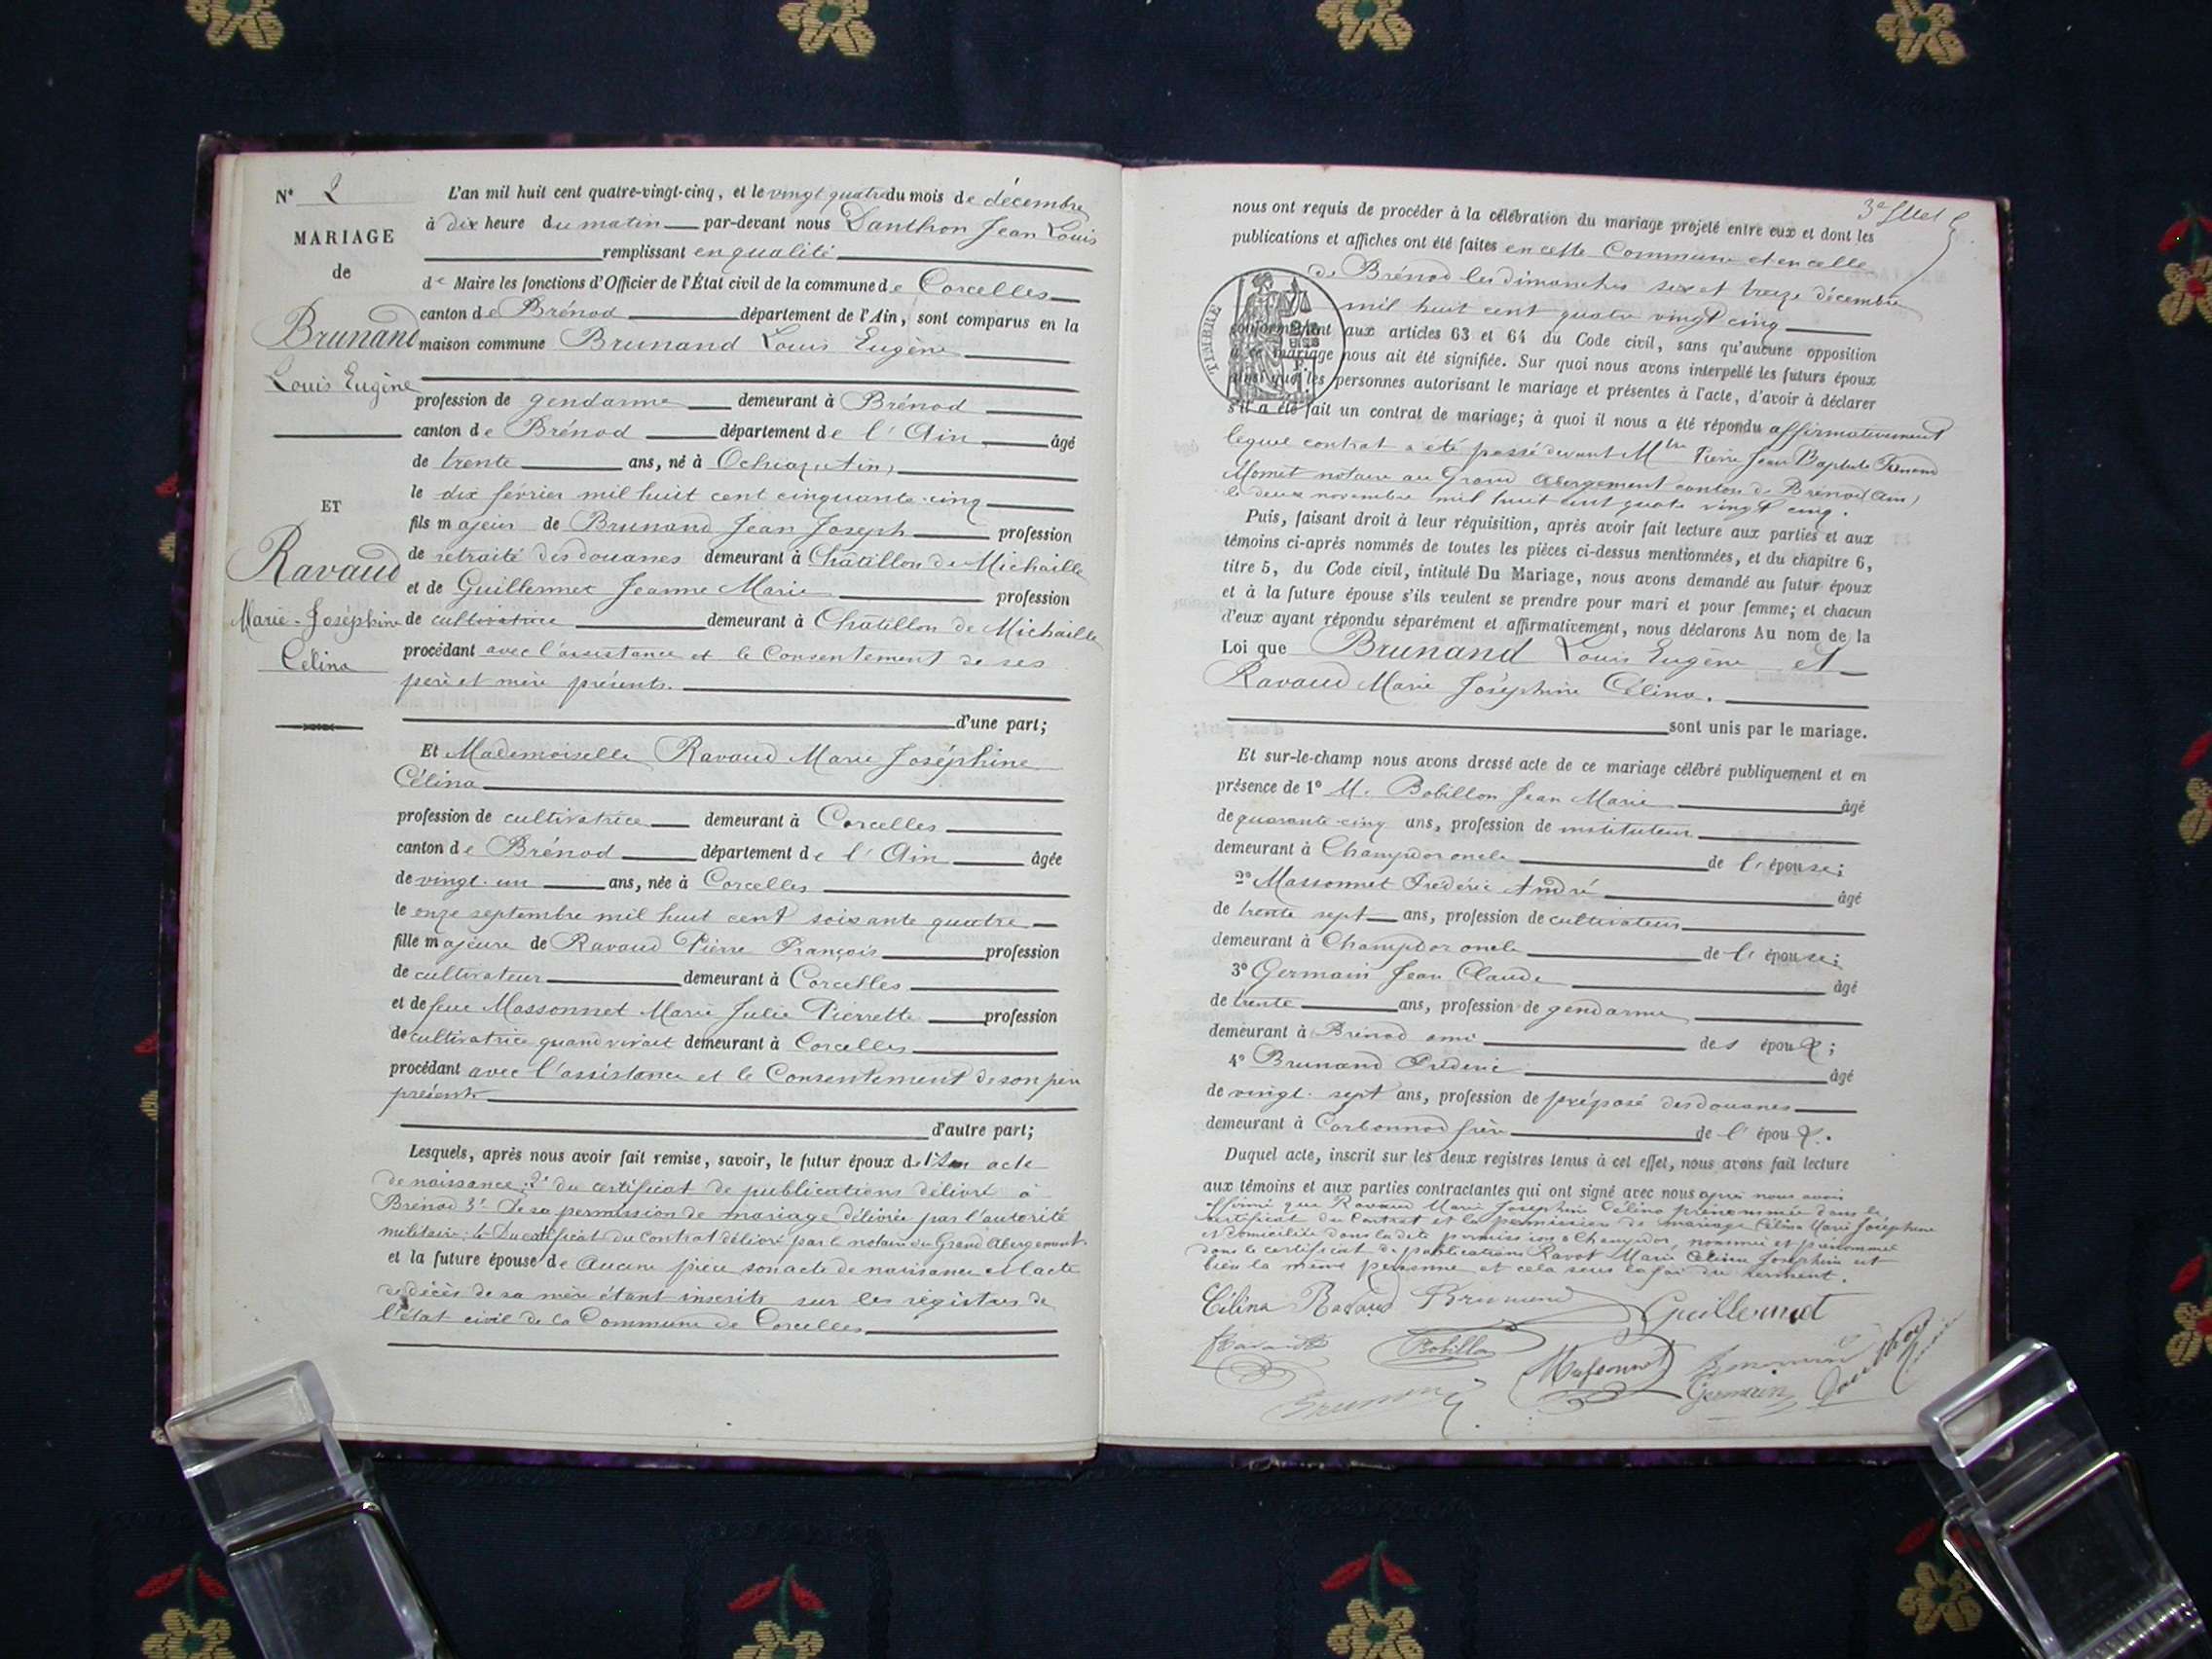 N° 2
MARIAGE
de
Brunand
Louis Eugène
ET
Ravaud
Marie-Joséphine
Célina
L'an mil huit cent quatre-vingt-cinq, et le vingt quatre du mois de décembre
à dix heure du matin par-devant nous Danthon Jean Louis
remplissant en qualité
de Maire les fonctions d'Officier de l'État civil de la commune de Corcelles
canton de Brénod département de l'Ain, sont comparus en la
maison commune Brunand Louis Eugène
profession de gendarme demeurant à Brénod
canton de Brénod département de l'Ain âgé
de trente ans, né à Ochiaz (Ain)
le dix février mil huit cent cinquante-cinq
fils majeur de Brunand Jean Joseph profession
de retraité des douanes demeurant à Châtillon de Michaille
et de Guillermet Jeanne Marie profession
de cultivatrice demeurant à Châtillon de Michaille
procédant avec l'assistance et le Consentement de ses
père et mère présents.
d'une part;
Et Mademoiselle Ravaud Marie Joséphine
Célina
profession de cultivatrice demeurant à Corcelles
canton de Brénod département de l'Ain âgée
de vingt-un ans, née à Corcelles
le onze septembre mil huit cent soixante quatre
fille majeure de Ravaud Pierre François profession
de cultivateur demeurant à Corcelles
et de feue Massonnet Marie Julie Pierrette profession
de cultivatrice quand vivait demeurant à Corcelles
procédant avec l'assistance et le Consentement de son père
présent
d'autre part;
Lesquels, après nous avoir fait remise, savoir, le futur époux de 1° son acte
de naissance; 2° du certificat de publications délivré à
Brénod 3° De sa permission de mariage délivrée par l'autorité
militaire; 4° Du certificat du Contrat délivré par le notaire du Grand Abergement.
et la future épouse de Aucune pièce son acte de naissance et l'acte
de décès de sa mère étant inscrits sur les registres de
l'état civil de la Commune de Corcelles
3e
nous ont requis de procéder à la célébration du mariage projeté entre eux et dont les
publications et affiches ont été faites en cette Commune et en celle
de Brénod les dimanches six et treize décembre
mil huit cent quatre vingt cinq
TIMBRE
conformément aux articles 63 et 64 du Code civil, sans qu'aucune opposition
à ce mariage nous ait été signifiée. Sur quoi nous avons interpellé les futurs époux
ainsi que les personnes autorisant le mariage et présentes à l'acte, d'avoir à déclarer
s'il a été fait un contrat de mariage; à quoi il nous a été répondu affirmativement
lequel contrat a été passé devant Mtre Pierre Jean Baptiste
Momet notaire au Grand Abergement canton de Brénod (Ain)
le deux novembre mil huit cent quatre vingt cinq.
Puis, faisant droit à leur réquisition, après avoir fait lecture aux parties et aux
témoins ci-après nommés de toutes les pièces ci-dessus mentionnées, et du chapitre 6,
titre 5, du Code civil, intitulé Du Mariage, nous avons demandé au futur époux
et à la future épouse s'ils veulent se prendre pour mari et pour femme; et chacun
d'eux ayant répondu séparément et affirmativement, nous déclarons Au nom de la
Loi que Brunand Louis Eugène et
Ravaud Marie Joséphine Célina.
sont unis par le mariage.
Et sur-le-champ nous avons dressé acte de ce mariage célébré publiquement et en
présence de 1° M. Bobillon Jean Marie âgé
de quarante-cinq ans, profession de instituteur
demeurant à Champdor oncle de l'épouse;
2° Massonnet Frédéric André âgé
de trente sept ans, profession de cultivateur
demeurant à Champdor oncle de l'épouse;
3° Germain Jean Claude âgé
de trente ans, profession de gendarme
demeurant à Brénod ami des époux;
4° Brunand Frédéric âgé
de vingt-sept ans, profession de préposé des douanes
demeurant à Corbonnod frère de l'époux.
Duquel acte, inscrit sur les deux registres tenus à cet effet, nous avons fait lecture
aux témoins et aux parties contractantes qui ont signé avec nous après nous avoir
affirmé que Ravaud Marie Joséphine Célina prénommée dans le
certificat du Contrat et la permission de mariage Célina Marie Joséphine
et domiciliée dans ladite permission à Champdor, nommée et prénommée
dans le certificat de publications Ravot Marie Célina Joséphine est
bien la même personne et cela sous la foi du serment.
Célina Ravaud Brunand Guillermet
Ravaud Bobillon Massonnet Brunand
Brunand Germain